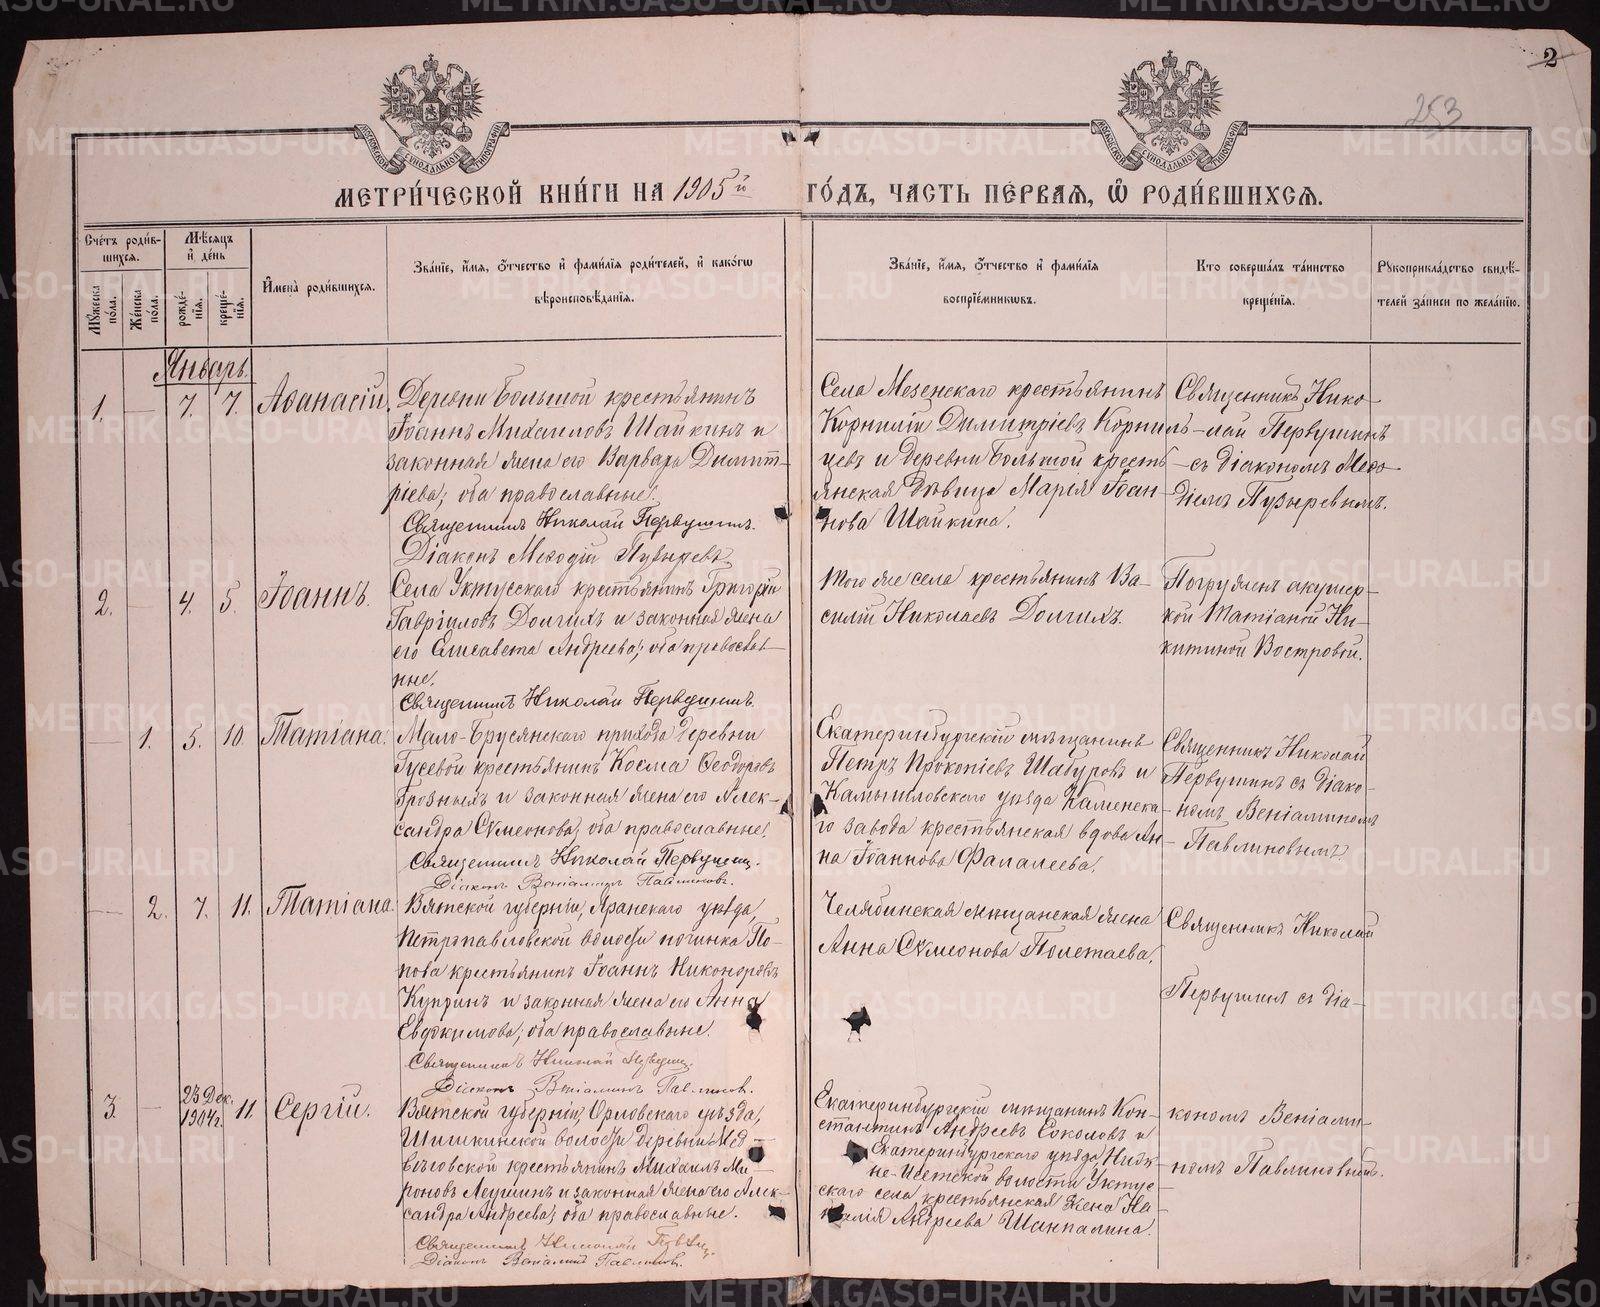 2
253
МОСКОВСКОЙ СУНОДАЛЬНОЙ ТИПОГРАФІИ
МОСКОВСКОЙ СУНОДАЛЬНОЙ ТИПОГРАФІИ
МЕТРИ́ЧЕСКОЙ КНИ́ГИ НА 1905й ГО́ДЪ, ЧАСТЬ ПЕ́РВАѦ, Ѡ҆ РОДИ́ВШИХСѦ.
Сче́тъ роди́в-
шихсѧ.
Мꙋ́жеска по́ла.
Же́нска по́ла.
Мѣ́сѧцъ и҆ де́нь
рожде́-
нїѧ.
креще́-
нїѧ.
И҆мена̀ роди́вшихсѧ.
Зва́нїе, и҆́мѧ, ѻ҆́тчество и҆ фами́лїѧ роди́телей, и҆ како́гѡ
вѣроисповѣ́данїѧ.
Зва́нїе, и҆́мѧ, ѻ҆́тчество и҆ фами́лїѧ
воспрїе́мниковъ.
Кто соверша́лъ та́инство
креще́нїѧ.
Рꙋкоприкла́дство свидѣ́-
телей за́писи по жела́нїю.
Январь.
1. — 7. 7. Аѳанасій.
Деревни Большой крестьянинъ
Іоаннъ Михаиловъ Шайкинъ и
законная жена его Варвара Димит-
ріева; оба православные.
Священникъ Николай Первушинъ.
Діаконъ Меѳодій Пузыревъ
Села Мезенскаго крестьянинъ
Корнилій Димитріевъ Корниль-
цевъ и деревни Большой кресть-
янская дѣвица Марія Іоан-
нова Шайкина.
Священникъ Нико-
лай Первушинъ
съ діакономъ Меѳо-
діемъ Пузыревымъ.
2. — 4. 5. Іоаннъ.
Села Уктусскаго крестьянинъ Григорій
Гавріиловъ Долгихъ и законная жена
его Елисавета Андреева; оба православ-
ные.
Священникъ Николай Первушинъ.
Того же села крестьянинъ Ва-
силій Николаевъ Долгихъ.
Погруженъ акушер-
кой Татіаной Ни-
китиной Востровой.
— 1. 5. 10. Татіана.
Мало-Брусянскаго прихода деревни
Гусевой крестьянинъ Косма Ѳеодоровъ
Грозныхъ и законная жена его Алек-
сандра Сѵмеонова; оба православные.
Священникъ Николай Первушинъ.
Діаконъ Веніаминъ Павлиновъ.
Екатеринбургскій мѣщанинъ
Петръ Прокопіевъ Шабуровъ и
Камышловскаго уѣзда Каменска-
го завода крестьянская вдова Ан-
на Іоаннова Фалалеева.
Священникъ Николай
Первушинъ съ діако-
номъ Веніаминомъ
Павлиновымъ.
— 2. 7. 11. Татіана.
Вятской губерніи, Яранскаго уѣзда,
Петропавловской волости починка По-
пова крестьянинъ Іоаннъ Никоноровъ
Купринъ и законная жена его Анна
Евдокимова; оба православные.
Священникъ Николай Первушинъ.
Діаконъ Веніаминъ Павлиновъ.
Челябинская мѣщанская жена
Анна Сѵмеонова Полетаева.
Священникъ Николай
Первушинъ съ діа-
3. — 23 Дек. 1904 г. 11. Сергій.
Вятской губерніи, Орловскаго уѣзда,
Шишкинской волости деревни Мед-
вѣговской крестьянинъ Михаилъ Ми-
роновъ Леушинъ и законная жена его Алек-
сандра Андреева; оба православные.
Священникъ Николай
Діаконъ Веніаминъ Павлиновъ.
Екатеринбургскій мѣщанинъ Кон-
стантинъ Андреевъ Соколовъ и
Екатеринбургскаго уѣзда, Ниж-
не-Исетской волости Уктус-
скаго села крестьянская жена На-
талія Андреева Шанпалина.
кономъ Веніами-
номъ Павлиновымъ.
METRIKI.GASO-URAL.RU